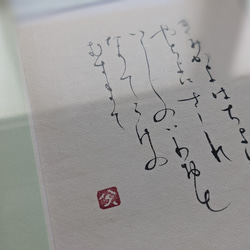 きみかよはちよに
やちよにさゝれ
いしのいわおと
なりてこけの
むすまて